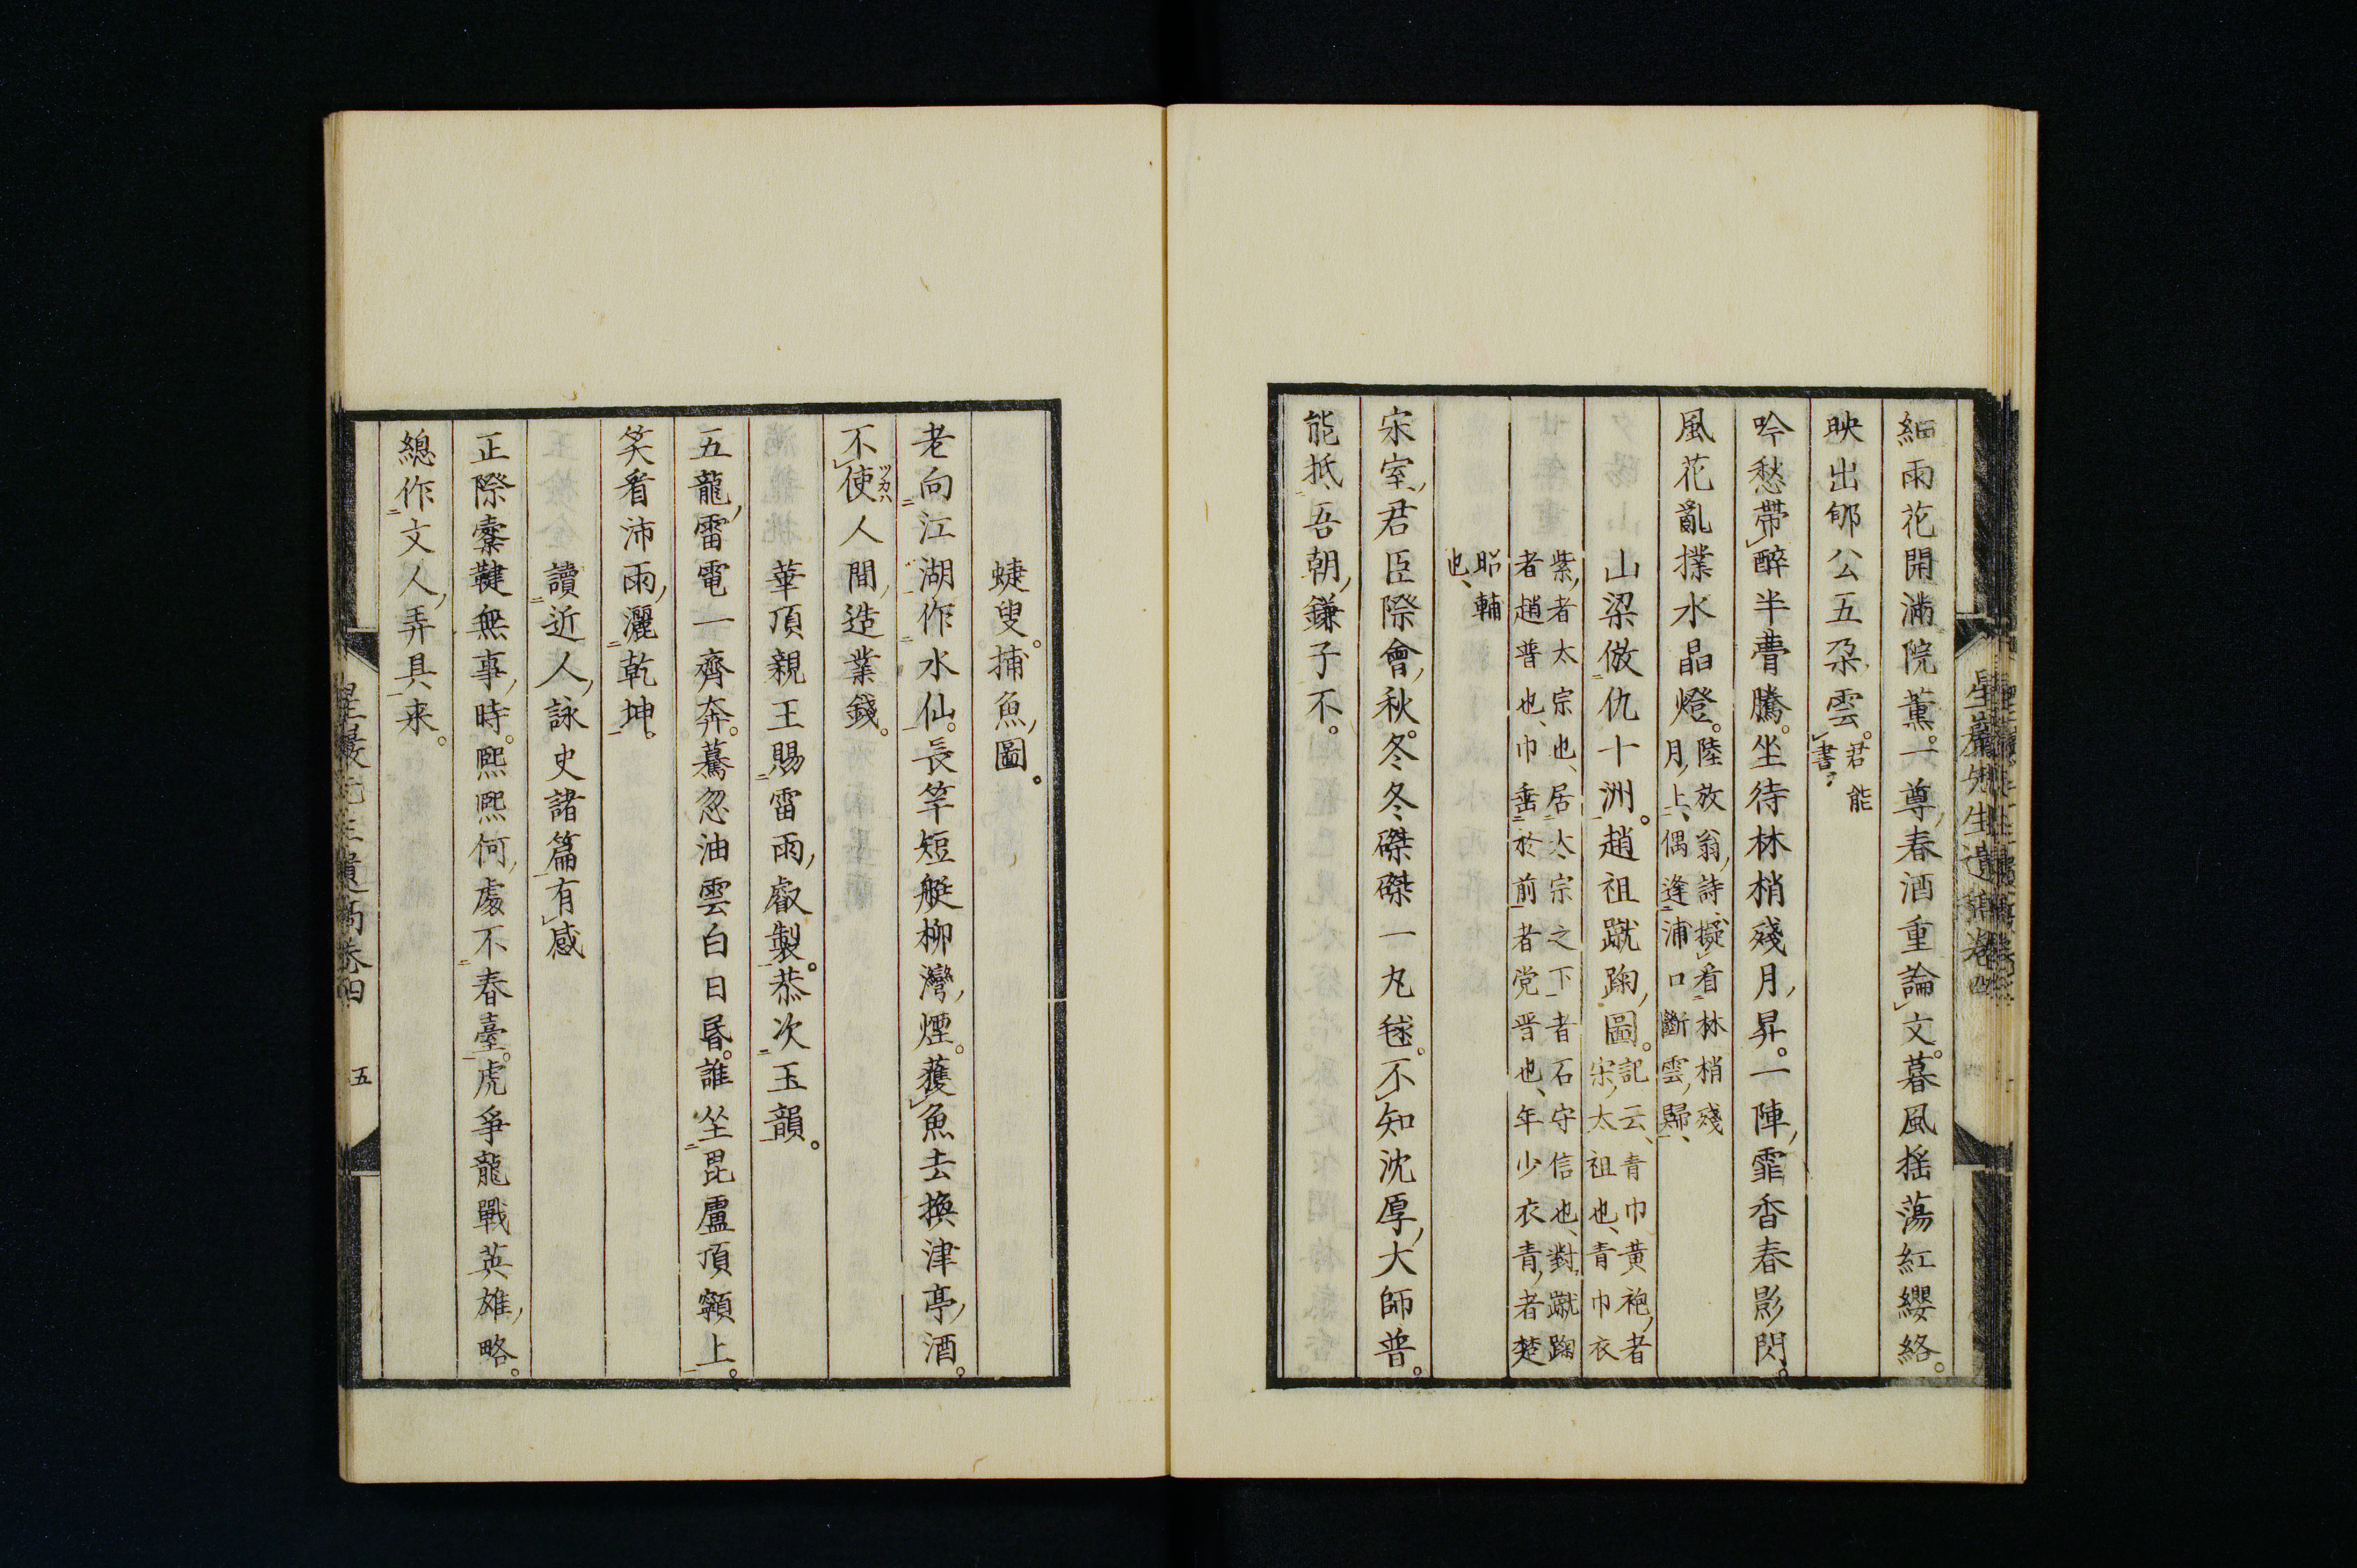 細雨花開滿院薫。一尊春酒重論文。暮風揺蕩紅纓絡。
映出郇公五朶雲。君能
書。
吟愁帶醉半瞢騰。坐待林梢殘月昇。一陣霏香春影閃。
風花亂撲水晶燈。陸放翁詩、擬看林梢殘
月上、偶逢浦口斷雲歸、
山梁倣仇十洲。趙祖蹴踘圖。記云、青巾黃袍者
宋太祖也、青巾衣
紫者太宗也、居太宗之下者石守信也、對蹴踘
者趙普也、巾垂於前者党晋也、年少衣青者楚
昭輔
也、
宋室君臣際會秋。冬冬磔磔一丸毬。不知沈厚大師普。
能抵吾朝鎌子不。
蜨叟。捕魚圖。
老向江湖作水仙。長竿短艇柳灣煙。獲魚去換津亭酒。
不使ツカハ人間造業錢。
華頂親王賜雷雨叡製。恭次玉韻。
五龍雷電一齊奔。驀忽油雲白日昏。誰坐毘盧頂顙上。
笑看沛雨灑乾坤。
讀近人詠史諸篇有感
正際櫜鞬無事時。熙熙何處不春臺。虎爭龍戰英雄略。
總作文人弄具来。
星巖先生遺稿卷四
五